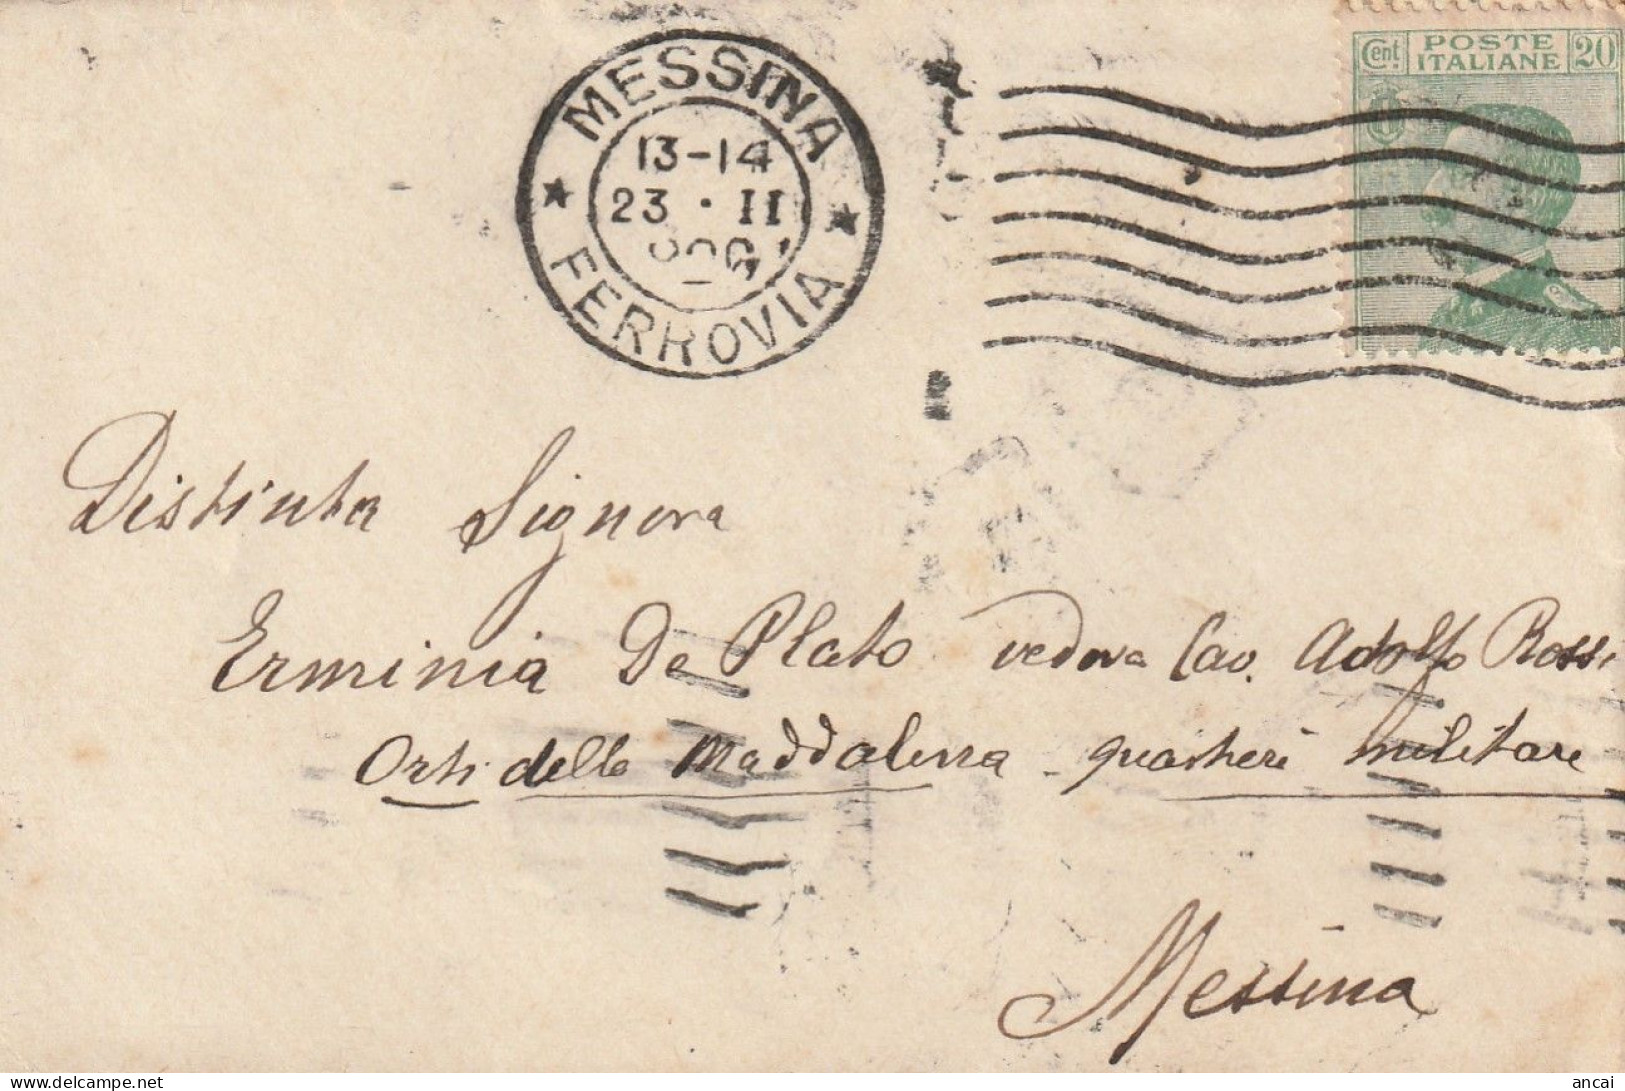 MESSINA
13-14
23 · II
FERROVIA
Cent. POSTE ITALIANE 20
Distinta Signora
Erminia De Plato vedova Cav. Adolfo Rossi
Orti della Maddalena - quartieri militare
Messina
ancai
delcampe.net